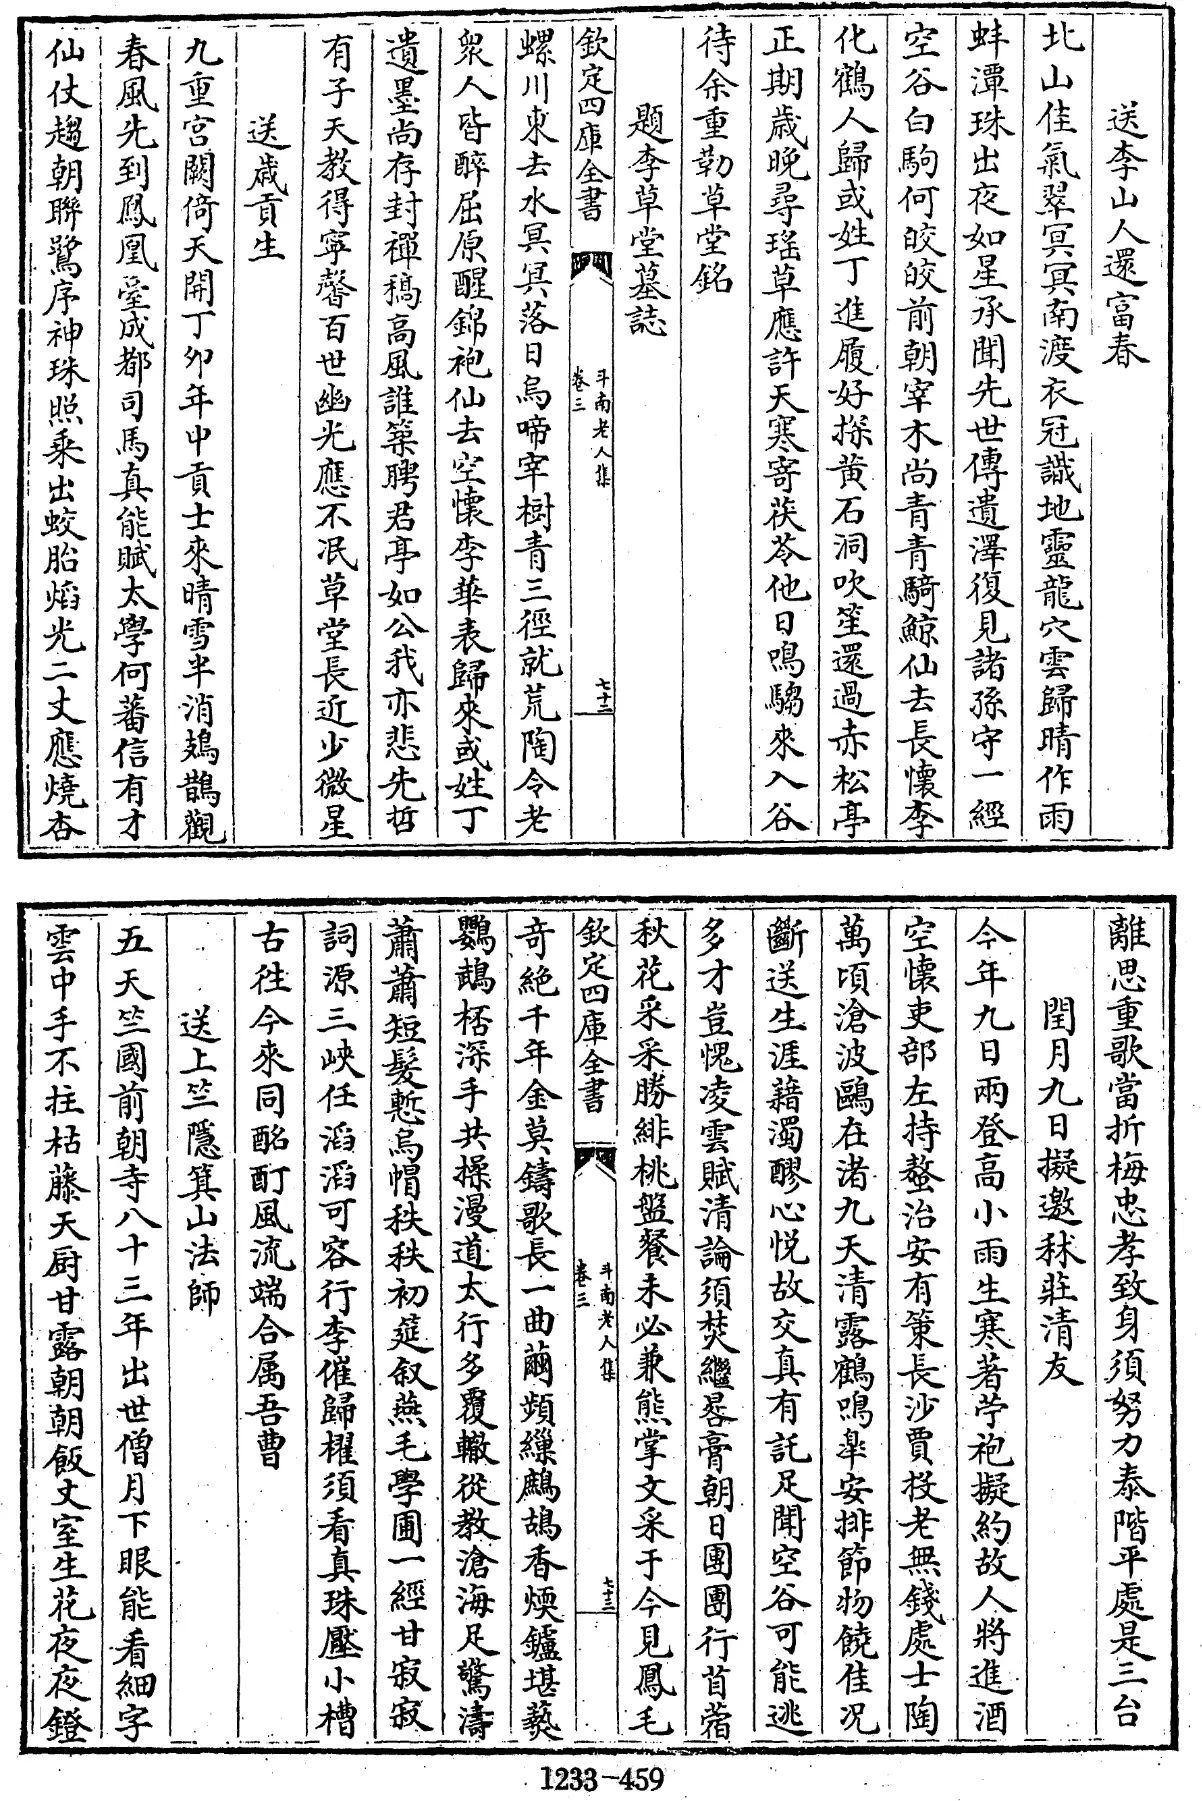 送李山人還富春
北山佳氣翠冥冥南渡衣冠識地靈龍穴雲歸晴作雨
蚌潭珠出夜如星承聞先世傳遺澤復見諸孫守一經
空谷白駒何皎皎前朝宰木尚青青騎鯨仙去長懷李
化鶴人歸或姓丁進履好探黄石洞吹笙還過赤松亭
正期歳晚尋瑤草應許天寒寄茯苓他日鳴騶來入谷
待余重勒草堂銘
題李草堂墓誌
欽定四庫全書
斗南老人集
卷三
七十二
螺川東去水冥冥落日烏啼宰樹青三徑就荒陶令老
衆人皆醉屈原醒錦袍仙去空懷李華表歸來或姓丁
遺墨尚存封禪稿高風誰築聘君亭如公我亦悲先哲
有子天教得寧馨百世幽光應不泯草堂長近少微星
送歲貢生
九重宮闕倚天開丁夘年中貢士來晴雪半消鳷鵲觀
春風先到鳳凰臺成都司馬真能賦太學何蕃信有才
仙仗趨朝聯鷺序神珠照乘出蛟胎焰光二丈應燒杏
離思重歌當折梅忠孝致身須努力泰階平處是三台
閏月九日擬邀秫莊清友
今年九日兩登高小雨生寒著苧袍擬約故人將進酒
空懷吏部左持螯治安有策長沙賈投老無錢處士陶
萬頃滄波鷗在渚九天清露鶴鳴臯安排節物饒佳况
斷送生涯藉濁醪心悦故交真有託足聞空谷可能逃
多才豈愧凌雲賦清論須焚繼晷膏朝日團團行苜蓿
秋花采采勝緋桃盤餐未必兼熊掌文采于今見鳳毛
欽定四庫全書
斗南老人集
卷三
七十三
竒絶千年金莫鑄歌長一曲繭頻繅鷓鴣香煗鑪堪爇
鸚鵡桮深手共操漫道太行多覆轍從教滄海足驚濤
蕭蕭短髮慙烏帽秩秩初筵叙燕毛學圃一經甘寂寂
詞源三峽任滔滔可容行李催歸櫂須看真珠壓小槽
古徃今來同酩酊風流端合属吾曹
送上竺隱箕山法師
五天竺國前朝寺八十三年出世僧月下眼能看細字
雲中手不拄枯藤天厨甘露朝朝飯丈室生花夜夜鐙
1233-459